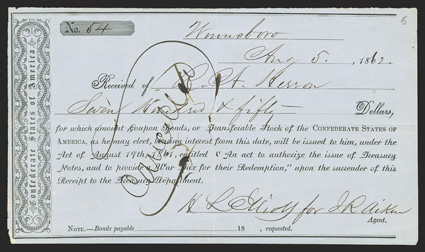 5
No. 54
Confederate States of America.
Winnsboro
Aug 5. 1862.
Received of P. H. Herron
Seven Hundred & fifty Dollars,
for which amount Coupon Bonds, or Transferable Stock of the CONFEDERATE STATES OF
AMERICA, as he may elect, bearing interest from this date, will be issued to him, under the
Act of August 19th, 1861, entitled "An act to authorize the issue of Treasury
Notes, and to provide a War Tax for their Redemption," upon the surrender of this
Receipt to the Treasury Department.
H L Elliott for J R Aiken
Agent.
NOTE.—Bonds payable 18 , requested.